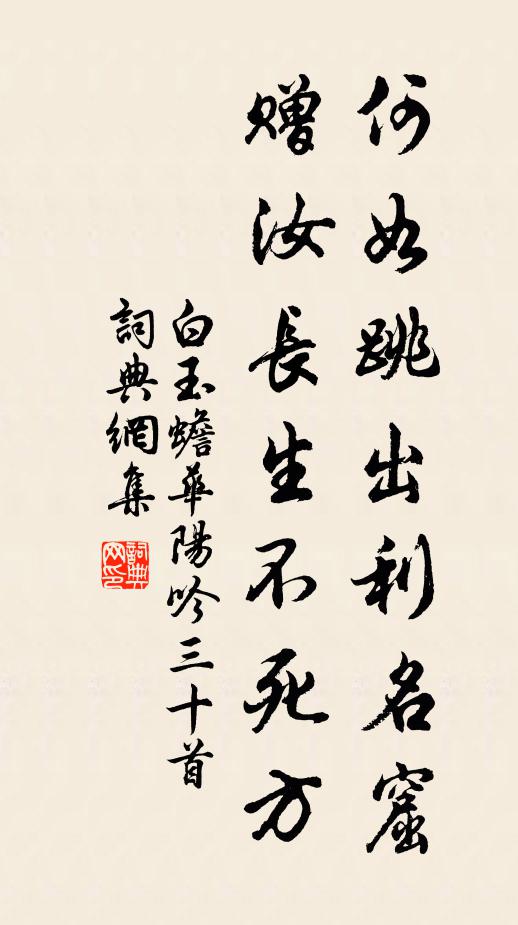 何如跳出利名窟
贈汝長生不死方
白玉蟾華陽吟三十首
詞典網集
詞典网印